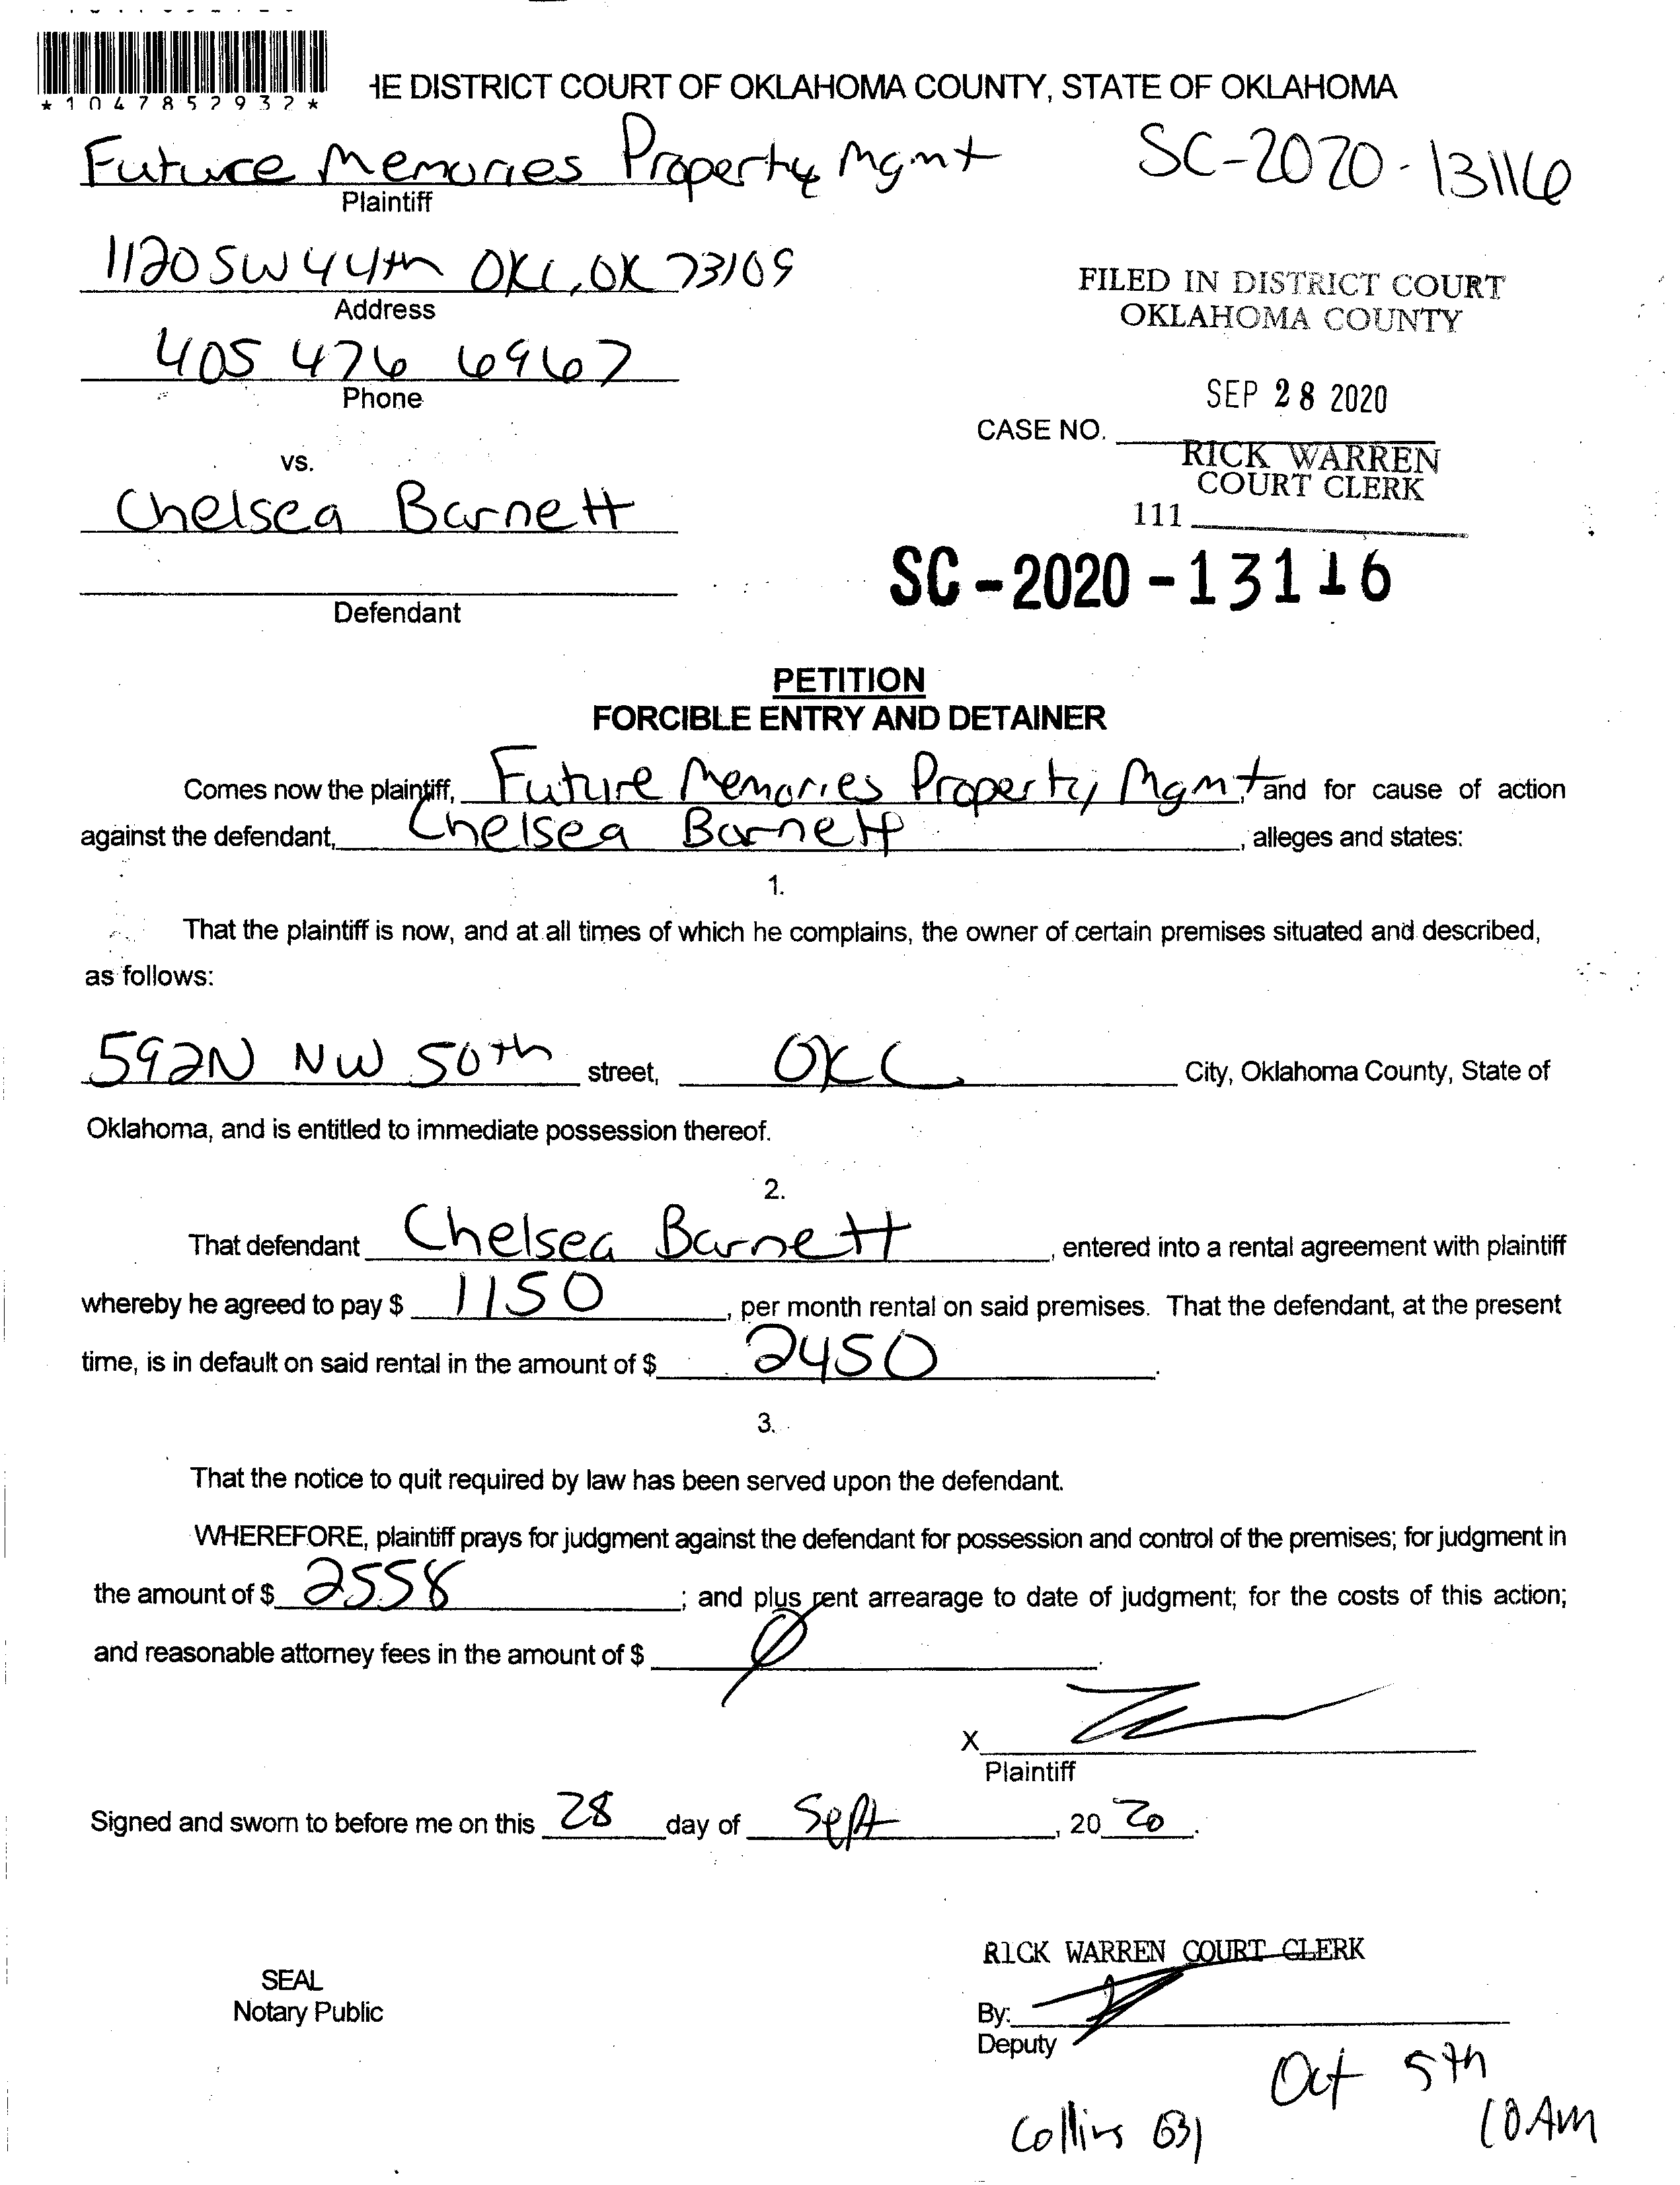 *1047852932*
HE DISTRICT COURT OF OKLAHOMA COUNTY, STATE OF OKLAHOMA
Future Memories Property Mgmt
SC-2020-13116
Plaintiff
1120 SW 44th OKC, OK 73109
Address
405 476 6967
Phone
FILED IN DISTRICT COURT
OKLAHOMA COUNTY
SEP 28 2020
CASE NO.
RICK WARREN
COURT CLERK
111
vs.
Chelsea Barnett
SC-2020-13116
Defendant
PETITION
FORCIBLE ENTRY AND DETAINER
Comes now the plaintiff, Future Memories Property Mgmt, and for cause of action
against the defendant, Chelsea Barnett, alleges and states:
1.
That the plaintiff is now, and at all times of which he complains, the owner of certain premises situated and described,
as follows:
592N NW 50th street, OKC City, Oklahoma County, State of
Oklahoma, and is entitled to immediate possession thereof.
2.
That defendant Chelsea Barnett, entered into a rental agreement with plaintiff
whereby he agreed to pay $ 1150, per month rental on said premises. That the defendant, at the present
time, is in default on said rental in the amount of $ 2450.
3.
That the notice to quit required by law has been served upon the defendant.
WHEREFORE, plaintiff prays for judgment against the defendant for possession and control of the premises; for judgment in
the amount of $ 2558; and plus rent arrearage to date of judgment; for the costs of this action;
and reasonable attorney fees in the amount of $ 0.
X
Plaintiff
Signed and sworn to before me on this 28 day of Sept, 20 20.
RICK WARREN COURT CLERK
SEAL
Notary Public
By:
Deputy
Oct 5th
10AM
Collins 631